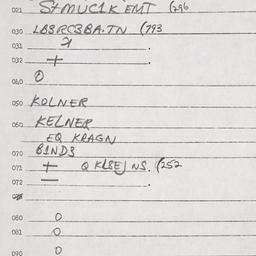 021 STMUC1K EMT (296
030 LBSRCSBA.TN (793
031 .
032 + .
040 0
050 KOLNER
060 KELNER
EQ KRAGN
070 BINDS
071 + Q KLSEJ NS. (252
072 — .
080 0
081 0
090 0